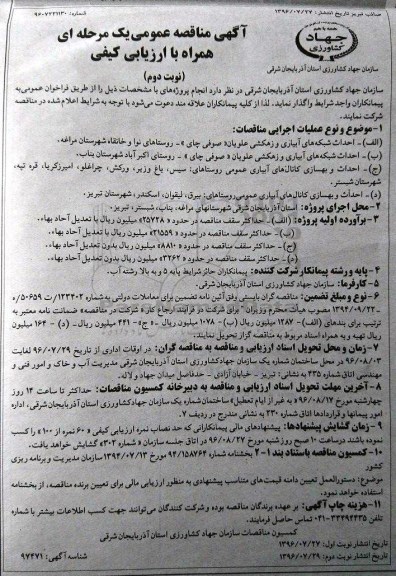 صائب تبریز تاریخ انتشار: ۱۳۹۶/۰۷/۲۷
شماره: ۹۶۰۷۲۲۱۱۳۰
جهاد
کشاورزی
آگهی مناقصه عمومی یک مرحله ای
همراه با ارزیابی کیفی
(نوبت دوم)
سازمان جهاد کشاورزی استان آذربایجان شرقی
سازمان جهاد کشاورزی استان آذربایجان شرقی در نظر دارد انجام پروژه‌های با مشخصات ذیل را از طریق فراخوان عمومی به
پیمانکاران واجد شرایط واگذار نماید. لذا از کلیه پیمانکاران علاقه مند دعوت می‌شود با توجه به شرایط اعلام شده در مناقصه
شرکت نمایند.
۱-موضوع و نوع عملیات اجرایی مناقصات:
(الف)- احداث شبکه‌های آبیاری و زهکشی علویان« صوفی چای » - روستاهای نوا و خانقاه شهرستان مراغه.
(ب)- احداث شبکه‌های آبیاری و زهکشی علویان « صوفی چای » - روستای اکبر آباد شهرستان بناب.
(ج)- احداث و بهسازی کانال‌های آبیاری عمومی روستاهای: سیس، باغ وزیر، ورکش، چراغلو، امیرزکریا، قره تپه،
شهرستان شبستر.
(د)- احداث و بهسازی کانال‌های آبیاری عمومی روستاهای: بیرق، لیقوان، اسکندر، شهرستان تبریز.
۲-محل اجرای پروژه: استان آذربایجان شرقی شهرستانهای مراغه، بناب، شبستر، تبریز.
۳-برآورده اولیه پروژه: (الف)- حداکثر سقف مناقصه در حدود « ۲۵۷۲۸» میلیون ریال با تعدیل آحاد بهاء.
(ب)- حداکثر سقف مناقصه در حدود « ۲۱۵۵۹» میلیون ریال با تعدیل آحاد بهاء.
(ج)- حداکثر سقف مناقصه در حدود « ۸۸۱۰» میلیون ریال بدون تعدیل آحاد بهاء.
(د)- حداکثر سقف مناقصه در حدود « ۳۲۶۲» میلیون ریال بدون تعدیل آحاد بهاء.
۴-پایه و رشته پیمانکار شرکت کننده: پیمانکاران حائز شرایط پایه ۵ و به بالا رشته آب.
۵-کارفرما: سازمان جهاد کشاورزی استان آذربایجان شرقی.
۶-نوع و مبلغ تضمین: مناقصه گران بایستی وفق آئین نامه تضمین برای معاملات دولتی به شماره ۱۲۳۴۰۲/ت ۵۰۶۵۹ه
-۱۳۹۴/۰۹/۲۲ مصوب هیأت محترم وزیران" برای شرکت در فرآیند ارجاع کار « شرکت در مناقصه» ضمانت نامه معتبر به
ترتیب برای بندهای (الف)- ۱۲۸۷ میلیون ریال، (ب)- ۱۰۷۸ میلیون ریال، «ج»- ۴۴۱ میلیون ریال.- (د) - ۱۶۴ میلیون
ریال تهیه و به همراه اسناد مربوط به مناقصه گزار تحویل نمایند.
۷-زمان و محل تحویل اسناد ارزیابی و مناقصه به مناقصه گران: در اوقات اداری از تاریخ ۹۶/۰۷/۲۹ لغایت
۹۶/۰۸/۰۳ در محل ساختمان شماره یک سازمان جهاد کشاورزی استان آذربایجان شرقی مدیریت آب و خاک و امور فنی و
مهندسی اتاق شماره ۳۳۵ به نشانی: تبریز - خیابان آزادی - حدفاصل میدان جهاد و لاله.
۸-آخرین مهلت تحویل اسناد ارزیابی و مناقصه به دبیرخانه کمیسیون مناقصات: حداکثر تا ساعت ۱۴ روز
چهارشنبه مورخ ۹۶/۰۸/۱۷ «به غیر از ایام تعطیل» ساختمان شماره یک سازمان جهاد کشاورزی استان آذربایجان شرقی، اداره
امور پیمانها و قراردادها اتاق شماره ۲۳۰ به نشانی مندرج در ردیف ۷.
۹-زمان گشایش پیشنهادها: پیشنهادهای مالی پیمانکارانی که حد نصاب نمره ارزیابی کیفی « ۶۰ نمره از ۱۰۰» را کسب
نموده باشند در ساعت ۱۰ صبح روز شنبه مورخ ۹۶/۰۸/۲۷ در اتاق جلسه سازمان « شماره ۳۰۲» گشایش خواهد یافت.
۱۰-کمیسیون مناقصه باستناد بند ۱-۲ بخشنامه شماره ۹۴/۱۵۸۷۶۴ مورخ ۱۳۹۴/۰۷/۱۳ سازمان مدیریت و برنامه ریزی
کشور
موضوع: دستورالعمل تعیین دامنه قیمت‌های متناسب پیشنهادی به منظور ارزیابی مالی برای تعیین برنده مناقصه، از بخشنامه
استفاده خواهد نمود.
۱۱-هزینه چاپ آگهی: بر عهده برندگان مناقصه بوده و شرکت کنندگان می‌توانند جهت کسب اطلاعات بیشتر با شماره
تلفن ۳۴۴۹۴۴۳۵-۰۴۱ تماس حاصل فرمایند.
کمیسیون مناقصات سازمان جهاد کشاورزی استان آذربایجان شرقی
تاریخ انتشار نوبت اول: ۱۳۹۶/۰۷/۲۷
تاریخ انتشار نوبت دوم: ۱۳۹۶/۰۷/۲۹
شناسه آگهی: ۹۷۴۷۱